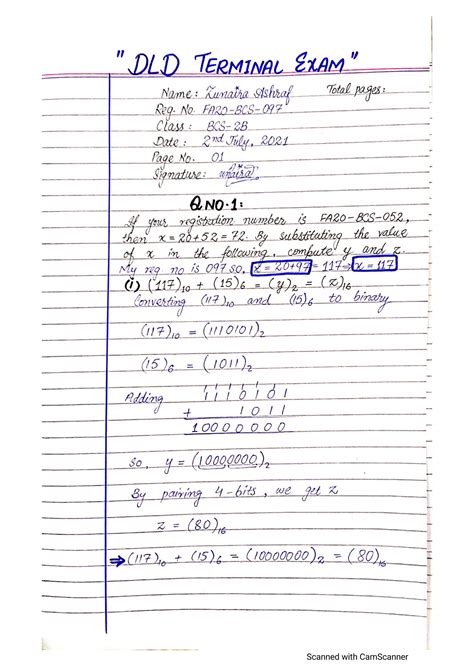 "DLD TERMINAL EXAM"
Name: Zunaira Ashraf Total pages:
Reg. No. FA20-BCS-097
Class: BCS-2B
Date: 2nd July, 2021
Page No. 01
Signature: zunaira
Q NO.1:
If your registration number is FA20-BCS-052,
then x = 20+52 = 72. By substituting the value
of x in the following, compute y and z.
My reg no is 097 so, x = 20+97 = 117 ⇒ x = 117
(i) (117)₁₀ + (15)₆ = (y)₂ = (z)₁₆
Converting (117)₁₀ and (15)₆ to binary
(117)₁₀ = (1110101)₂
(15)₆ = (1011)₂
1 1 1 1 1 1
Adding 1110101
+ 1011
10000000
So, y = (10000000)₂
By pairing 4-bits, we get z
z = (80)₁₆
⇒ (117)₁₀ + (15)₆ = (10000000)₂ = (80)₁₆
Scanned with CamScanner